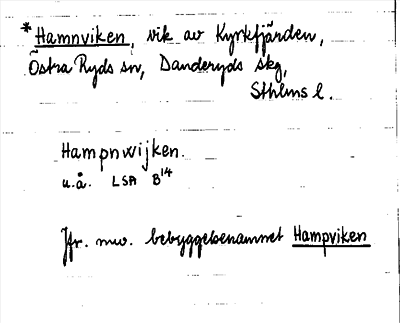 *Hamnviken, vik av Kyrkfjärden,
Östra Ryds sn, Danderyds skg,
Sthlms l.
Hampnwijken.
u.å. LSA B14
Jfr. nuv. bebyggelsenamnet Hampviken